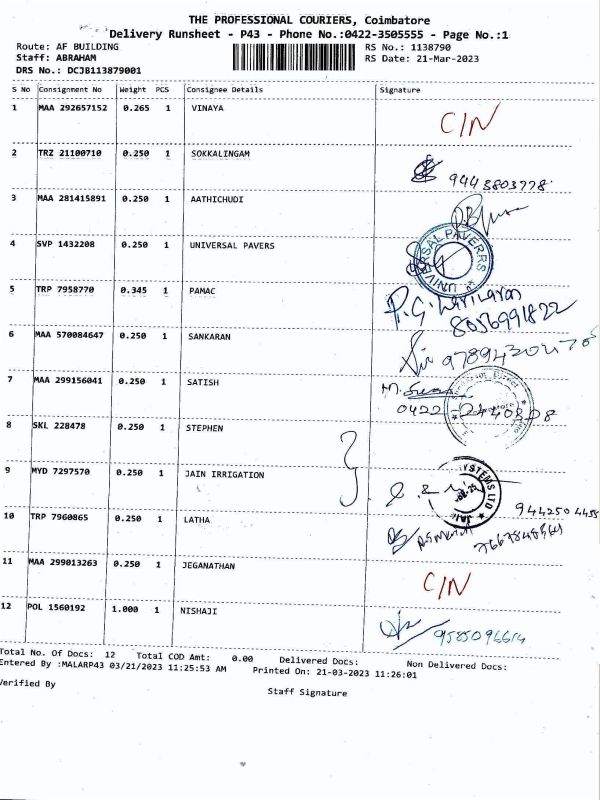 THE PROFESSIONAL COURIERS, Coimbatore
Delivery Runsheet - P43 - Phone No.:0422-3505555 - Page No.:1
Route: AF BUILDING RS No.: 1138790
Staff: ABRAHAM RS Date: 21-Mar-2023
DRS No.: DCJB113879001
S No Consignment No Weight PCS Consignee Details Signature
1 MAA 292657152 0.265 1 VINAYA C/N
2 TRZ 21100710 0.250 1 SOKKALINGAM 9443803778
3 MAA 281415891 0.250 1 AATHICHUDI
4 SVP 1432208 0.250 1 UNIVERSAL PAVERS UNIVERSAL PAVERRS
5 TRP 7958770 0.345 1 PAMAC P.G. Hariharan
8056991822
6 MAA 570084647 0.250 1 SANKARAN
7 MAA 299156041 0.250 1 SATISH
8 SKL 228478 0.250 1 STEPHEN
9 MYD 7297570 0.250 1 JAIN IRRIGATION
10 TRP 7960865 0.250 1 LATHA
11 MAA 299013263 0.250 1 JEGANATHAN C/N
12 POL 1560192 1.000 1 NISHAJI 9585096614
Total No. Of Docs: 12 Total COD Amt: 0.00 Delivered Docs: Non Delivered Docs:
Entered By :MALARP43 03/21/2023 11:25:53 AM Printed On: 21-03-2023 11:26:01
Verified By Staff Signature